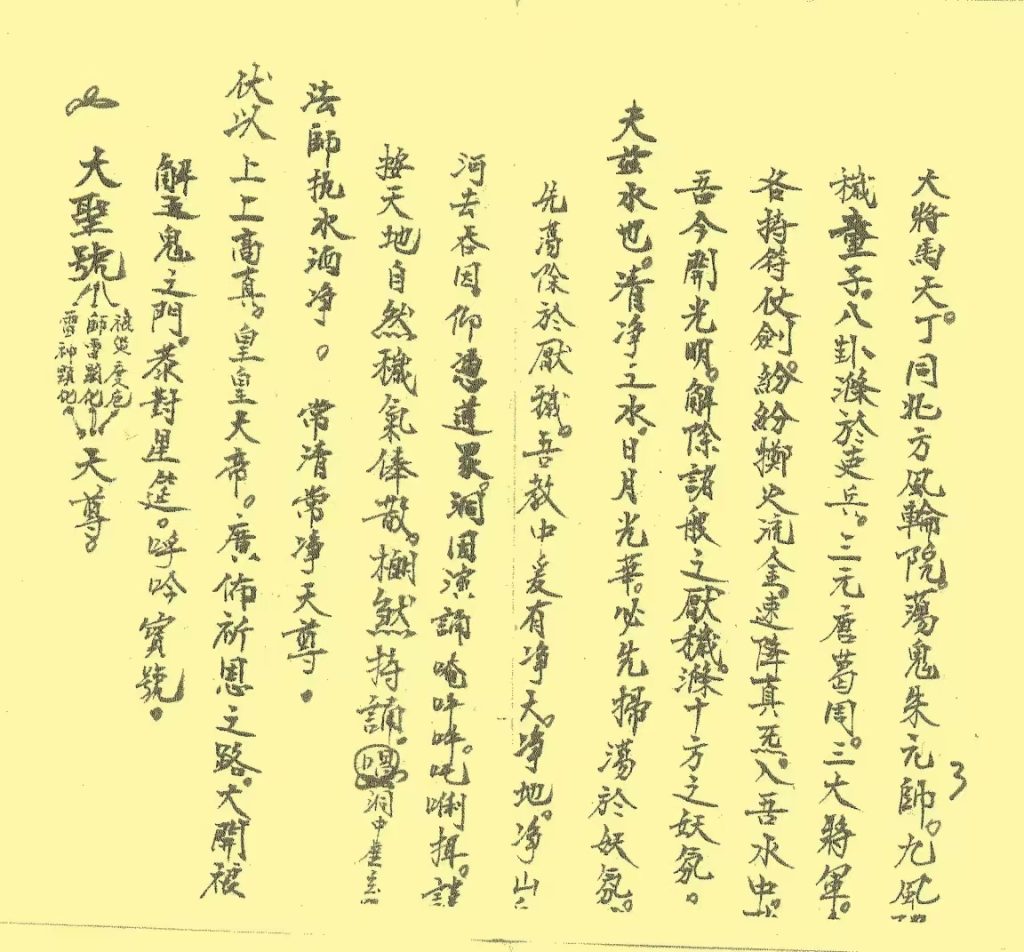 大將馬天丁。同北方風輪院。蕩鬼朱元帥。九風
穢童子。八卦滌於吏兵。三元唐葛周。三大將軍。
各持符仗劍。紛紛擲火流金。速降真炁。入吾水中。
吾今開光明。解除諸般之厭穢。滌十方之妖氛。
夫茲水也。清净之水。日月光華。必先掃蕩於妖氛。
先蕩除於厭穢。吾教中爰有净天。净地。净山
河去吞因仰憑道眾。洞因演誦唵吽吽。吒唎
按天地自然穢氣俸散。棚然持誦。唱洞中
法師执水洒净。 常清常净天尊。
伏以 上上高真。皇皇天帝。廣佈祈恩之路。大開被
解五鬼之門。恭對星筵。呼吟寶號。
大聖號
師雷顯化
雷神顯化
天尊。
3